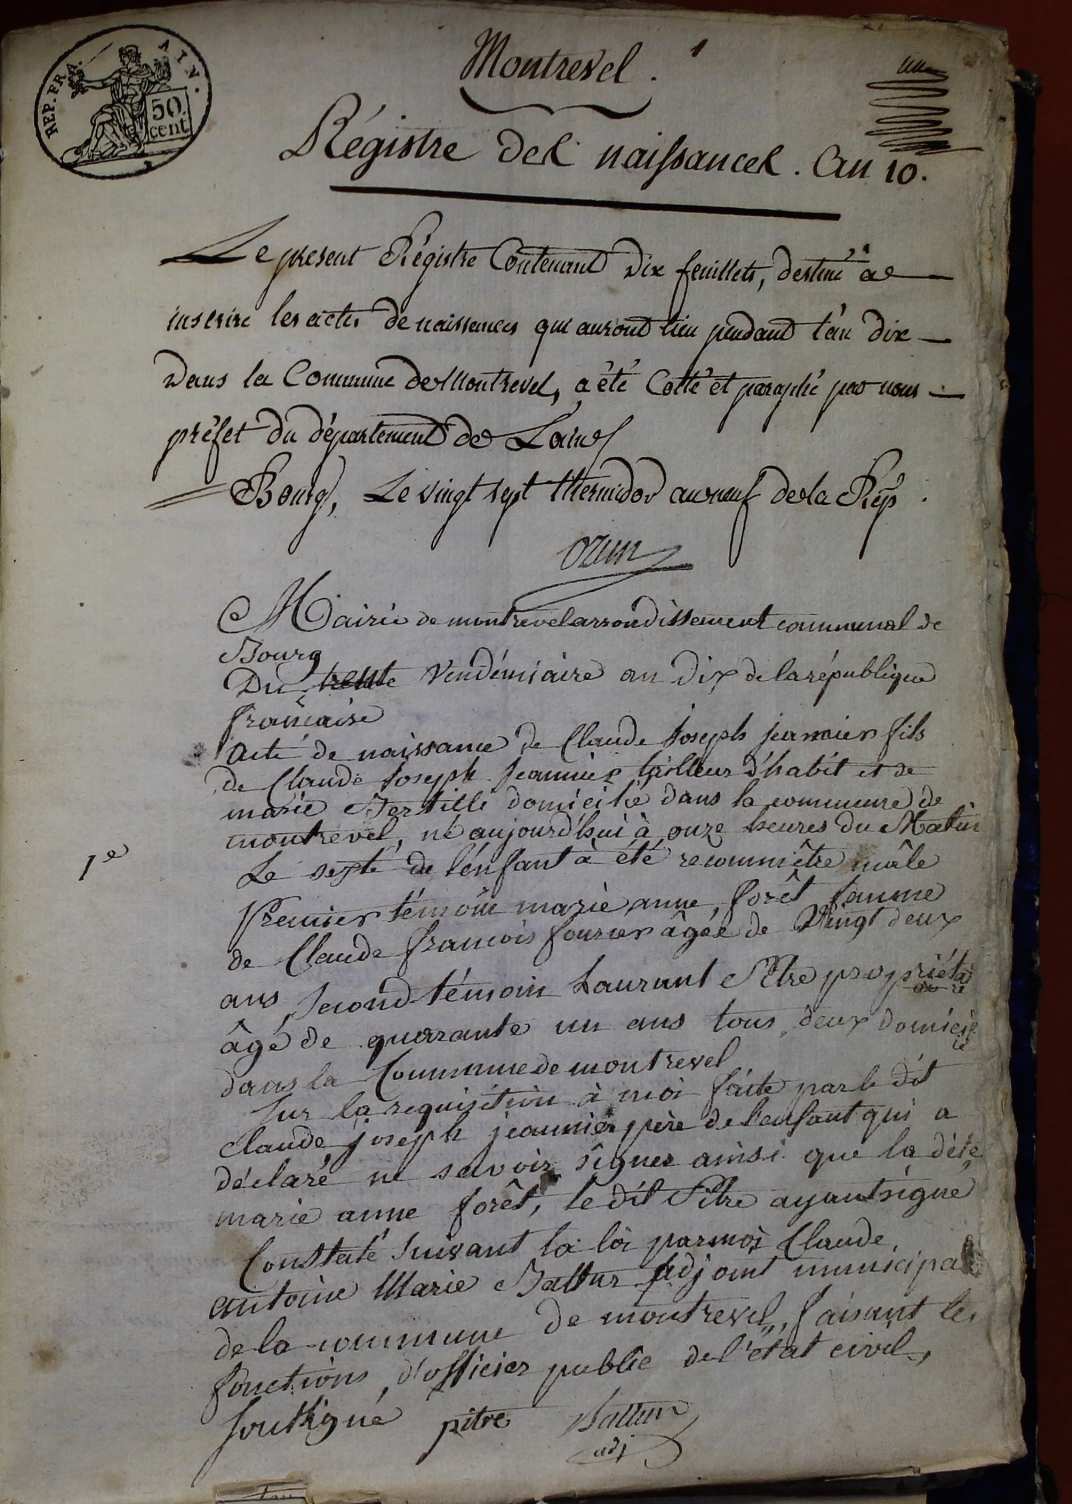 REP. FRA. AIN.
50 cent
Montrevel. 1
Régistre des naissances. An 10.
Le present Régistre Contenant Dix feuillets, destiné a
inscrire les actes de naissances qui auront lieu pendant l'an dix
Dans la Commune de Montrevel, a été Cotté et paraphé par nous
préfet du département de L'ain
Bourg, Le vingt sept thermidor an neuf de la Rép.
Ozun
Mairie de montrevel arrondissement communal de
Bourg
Du trente Vendémiaire an Dix de la république
française
Acte de naissance de Claude Joseph jeannier fils
de Claude Joseph Jeannier tailleur d'habit et de
marie domicilié dans la commune de
montrevel, né aujourd'hui à onze heures du Matin
1e
Le sexte de l'enfant à été reconnu être mâle
Premier témoin marie anne forêt femme
de Claude francois fourier âgée de Vingt deux
ans Second témoin Laurant Pitre propriétaire
âgé de quarante un ans tous deux domicié
dans la Commune de montrevel
Sur la requisition à moi faite par le dit
Claude joseph jeannier père de l'enfant qui a
déclaré ne savoir signer ainsi que la déte
marie anne forêt, le dit Pitre ayant signé
Constaté Suivant la loi par moi Claude
antoine Marie adjoint municipal
de la commune de montrevel, faisant les
fonctions d'officier public de l'état civil,
Soutsigné pitre
adj